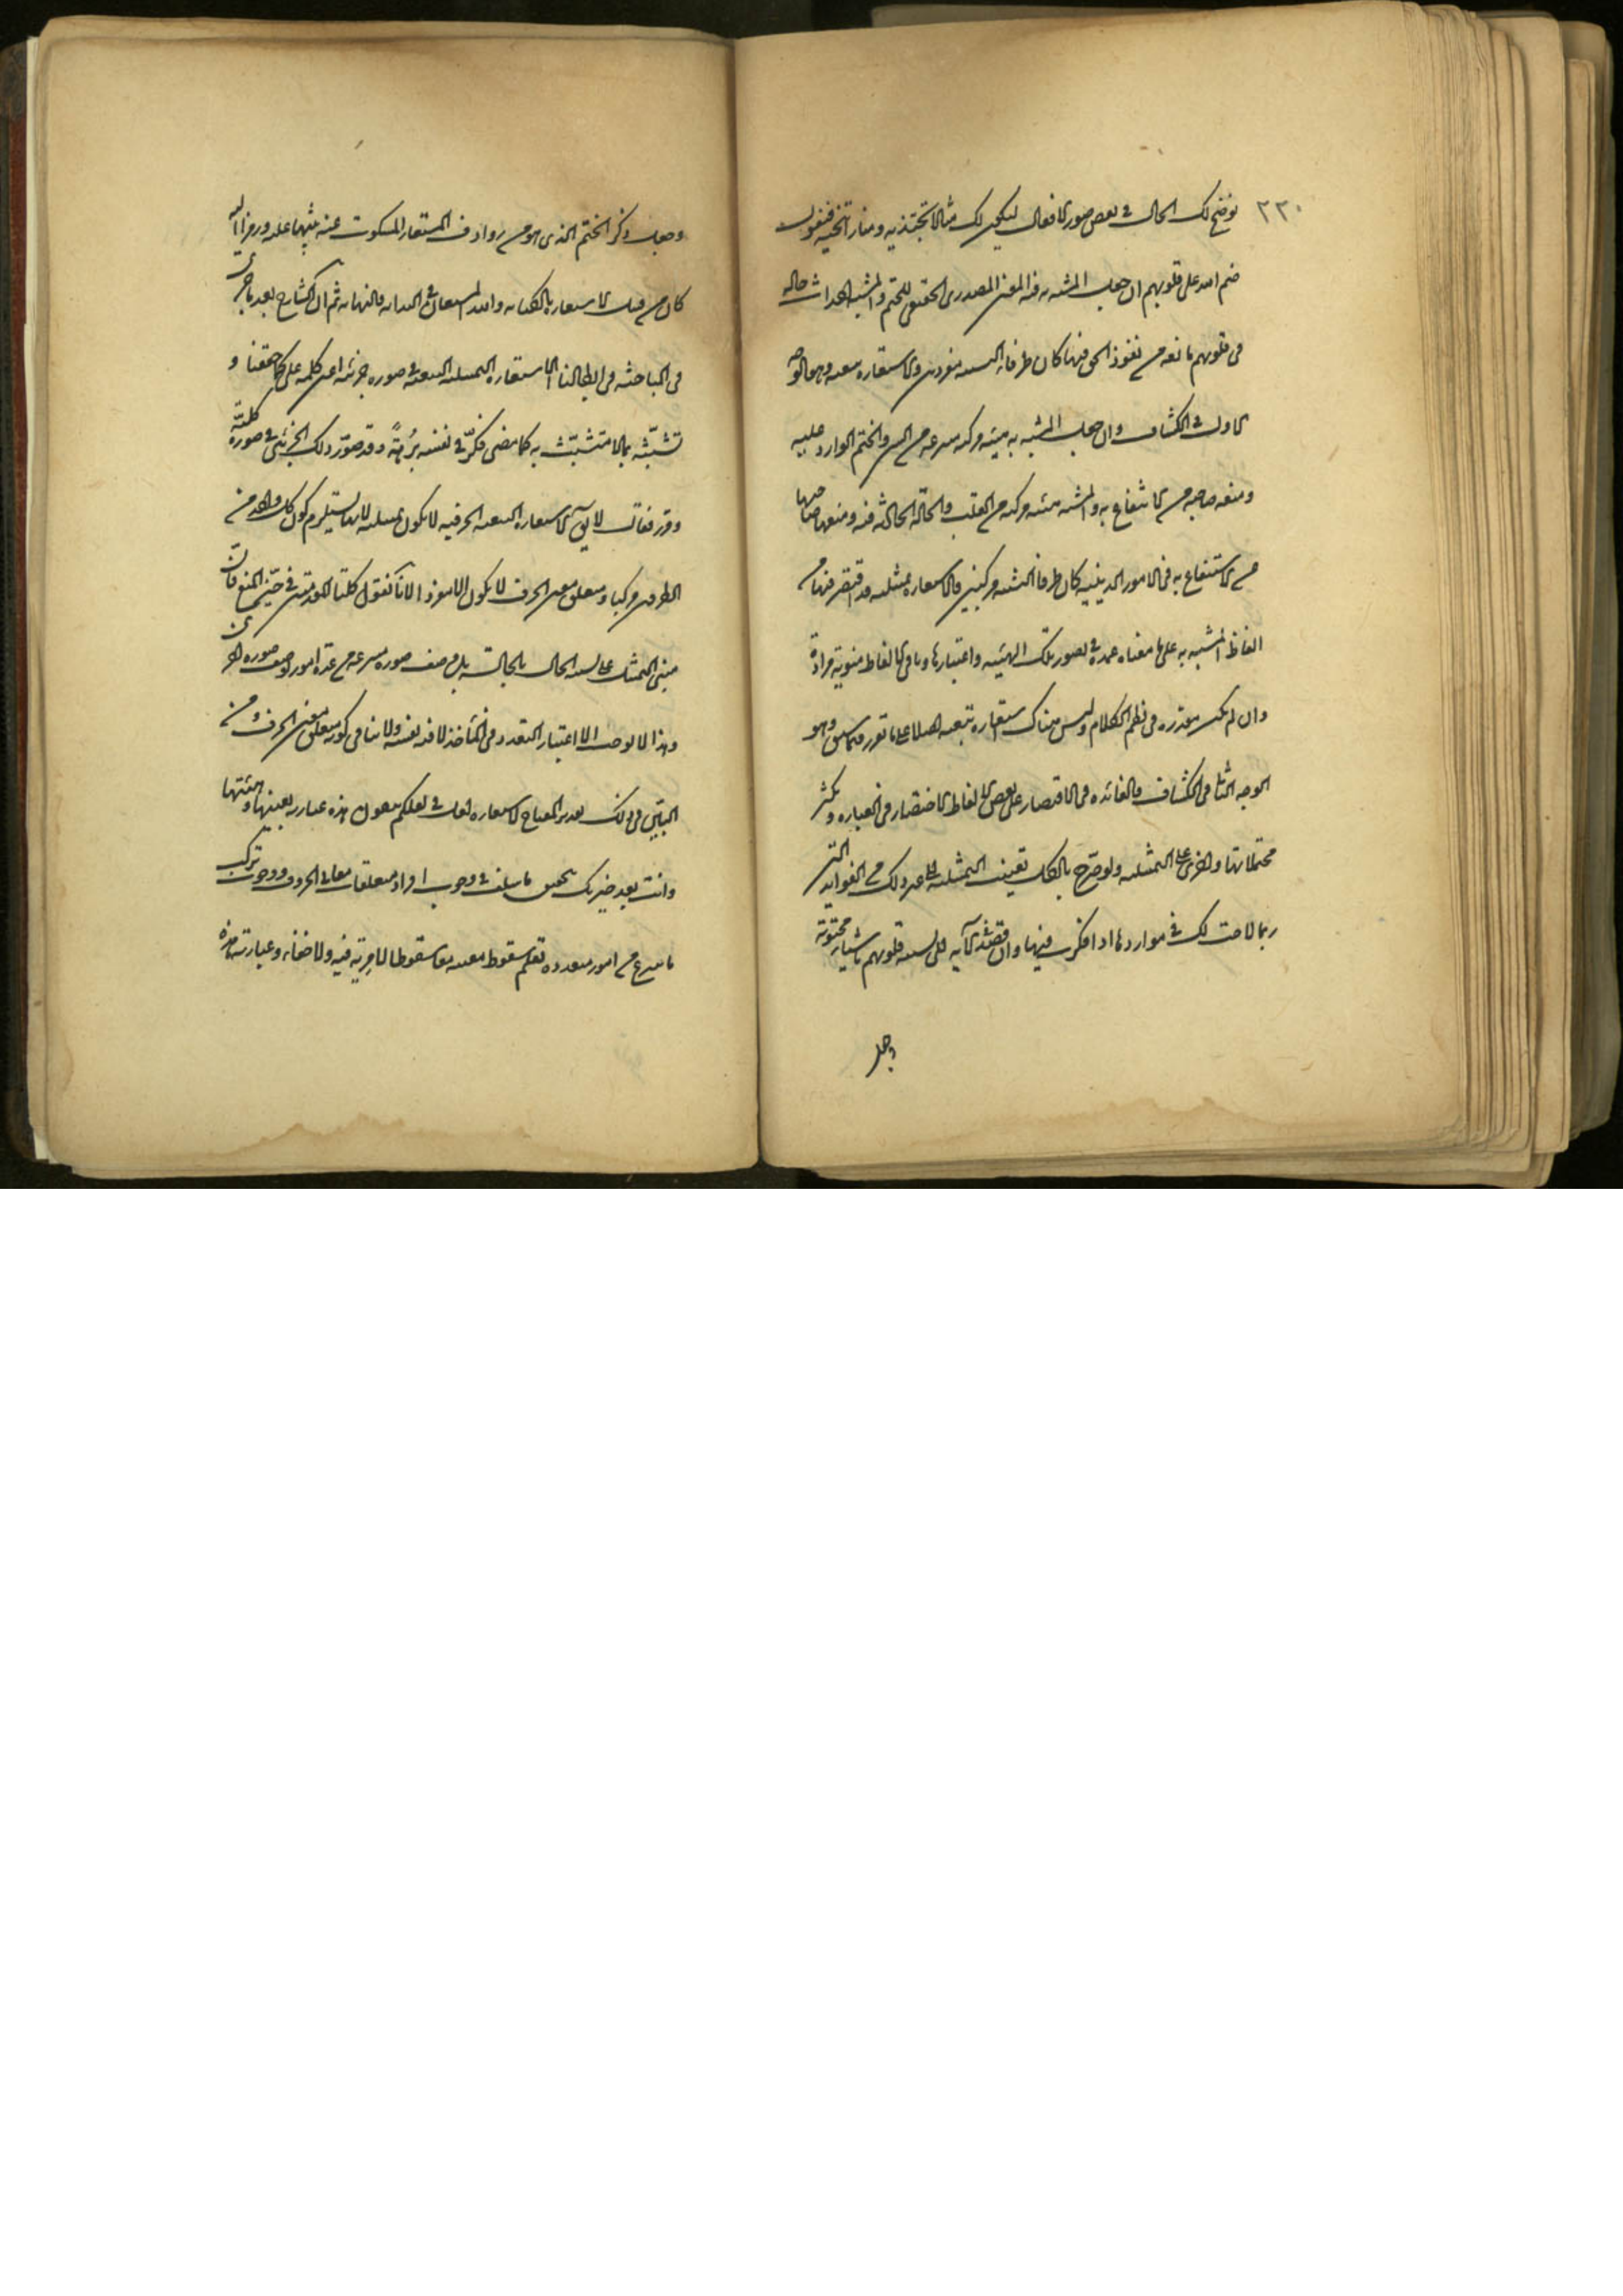 ٢٢٠ نوضح لك الحال في بعض صور الافعال ليكون لك مثالا تحتذيه ومنارا تنتحيه فنقول
ختم الله على قلوبهم ان جعل المشبه به فيه المعنى المصدرى الحقيقى للختم والمشبه احداث حالة
فى قلوبهم مانعة من نفوذ الحق فيها كان طرفا التشبيه مفردين والاستعارة تبعية وهو الوجه
الاول في الكشاف وان جعل المشبه به هيئة مركبة منتزعة من الشئ والختم الوارد عليه
ومنعه صاحبه من الانتفاع به والمشبه هيئة مركبة من القلب والحالة الحادثة فيه ومنعها صاحبها
من الاستنفاع به فى الامور الدينية كان طرفا التشبيه مركبين والاستعارة تمثيلية قد اقتصر فيها من
الفاظ المشبه به على ما معناه عمدة في تصور تلك الهيئة واعتبارها وباقى الالفاظ منوية مرادة
وان لم تكن مقدرة فى نظم الكلام وليس هناك استعارة تبعية اصلا على ما تقرر فيما سبق وهو
الوجه الثانى فى الكشاف والفائدة فى الاقتصار على بعض الالفاظ الاختصار فى العبارة وتكثر
محتملاتها والحرى على التمثيلية ولو صرح بالكل تعين التمثيلية الى غير ذلك من الفوايد التى
ربما لاحت لك في مواردها اذا فكرت فيها وان قصد فى الآية الى تشبيه قلوبهم باشياء مختومة
وجعل
وجعل ذكر الختم الذى هو من روادف المستعار المسكوت عنه تنبيها عليه ورمزا اليه
كان من قبيل الاستعارة بالكناية والله المستعان في البداية والنهاية ثم ان الشارح بعد ما جرى
فى المباحثة فى ابطالنا الاستعارة التمثيلية التبعية في صورة جزئية اعنى كلمة على كما حققنا و
تشبثه بما لا متشبث به كما مضى فكر في نفسه برهة وقد صور ذلك الجزئى في صورة كلية
وقرر فقال لا يق الاستعارة التبعية الحرفية لا تكون تمثيلية لانها تستلزم كون كل واحد من
الطرفين مركبا ومتعلق معنى الحرف لا يكون الا مفردا لانا نقول كلتا المقدمتين في حيز المنع فان
مبنى التمثيل على تشبيه الحال بالحالة بل وصف صورة منتزعة من عدة امور لوصف صورة اخرى
وهذا لا يوجب الا اعتبار التعدد فى المأخذ لا فيه نفسه ولا ينافى كونه متعلق معنى الحرف ومن
البين فى ذلك تقرير المفتاح لاستعارة لعل في لعلكم تتقون هذه عبارته بعينها وهيئتها
وانت بعد خبرتك بتحقيق ما سلف في وجوب افراد متعلقات معانى الحروف ووجوب تركب
ما ينتزع من امور متعددة تعلم سقوط منعيه معا سقوطا لا مرية فيه ولا خفاء وعبارته هذه